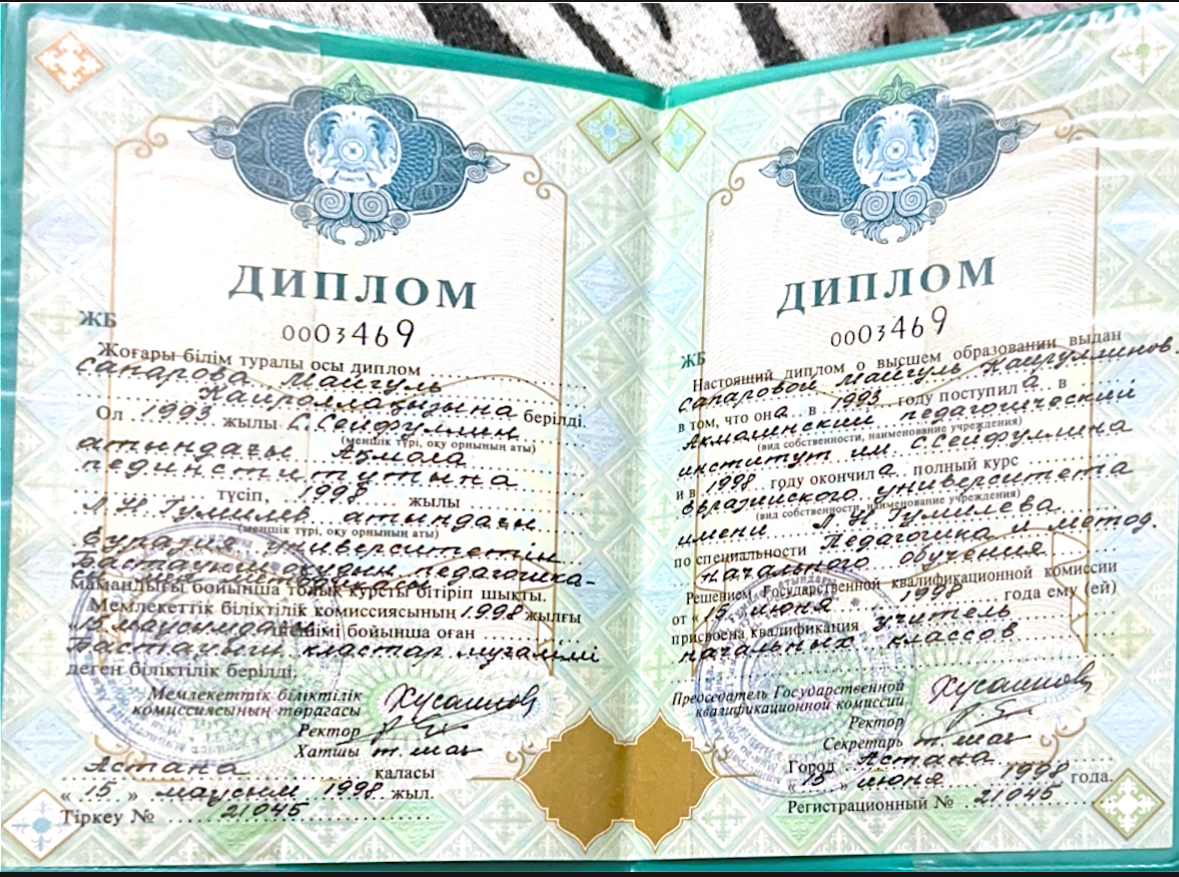 ДИПЛОМ
0003469
ЖБ
Жоғары білім туралы осы диплом
Сапарова Майгуль
Каироллақызына берілді.
Ол 1993 жылы С.Сейфуллин
(меншік түрі, оқу орнының аты)
атындағы Ақмола
пединститутына
түсіп, 1998 жылы
Л Н Гумилев атындағы
(меншік түрі, оқу орнының аты)
Еуразия университетін
Бастауыш оқудың педагогика-
методикасы
мамандығы бойынша толық курсты бітіріп шықты.
Мемлекеттік біліктілік комиссиясының 1998 жылғы
15 маусымдағы шешімі бойынша оған
Бастауыш кластар мұғалімі
деген біліктілік берілді.
Мемлекеттік біліктілік
комиссиясының төрағасы
Ректор
Хатшы
Астана қаласы
« 15 » маусым 1998 жыл.
Тіркеу № 21045
ДИПЛОМ
0003469
ЖБ
Настоящий диплом о высшем образовании выдан
Сапаровой Майгуль Каируллинов.
в том, что она в 1993 году поступила в
Акмолинский педагогический
(вид собственности, наименование учреждения)
институт им С.Сейфуллина
и в 1998 году окончила полный курс
Евразийского университета
(вид собственности, наименование учреждения)
имени Л Н Гумилева
по специальности Педагогика и метод.
начального обучения
Решением Государственной квалификационной комиссии
от « 15 » июня 1998 года ему (ей)
присвоена квалификация учитель
начальных классов
Председатель Государственной
квалификационной комиссии
Ректор
Секретарь
Город Астана
« 15 » июня 1998 года.
Регистрационный № 21045